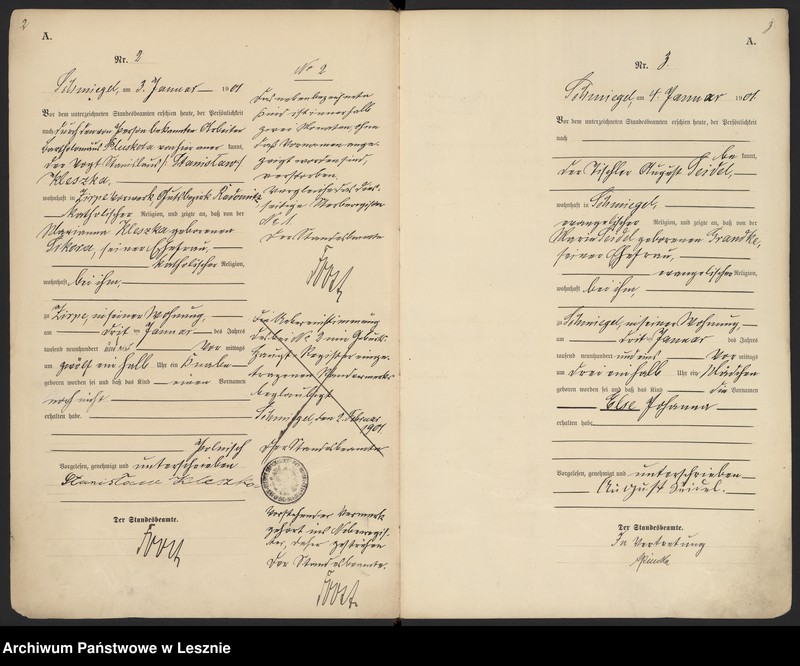 2
A.
Nr. 2
Schmiegel, am 3. Januar 1901
Vor dem unterzeichneten Standesbeamten erschien heute, der Persönlichkeit
nach durch den von Person bekannten Arbeiter
Bartholomäus Kluskota von hier aner kannt,
der Vogt Stanislaus /: Stanislaw :/
Kleszka,
wohnhaft in Zirpe Vorwerk Gutsbezirk Radomitz
katholischer Religion, und zeigte an, daß von der
Marianna Kleszka geborenen
Sikora, seiner Ehefrau,
katholischer Religion,
wohnhaft bei ihm,
zu Zirpe, in seiner Wohnung,
am drit ten Januar des Jahres
tausend neunhundert und eins Vor mittags
um zwölf ein halb Uhr ein Knabe
geboren worden sei und daß das Kind einen Vornamen
noch nicht
erhalten habe.
Polnisch
Vorgelesen, genehmigt und unterschrieben
Stanisław Kleszka
Der Standesbeamte.
No 2
Das nebenbezeichnete
Kind ist innerhalb
zwei Monaten, ohne
daß Vornamen ange-
zeigt worden sind,
verstorben.
Vergleiche das dies-
seitige Sterberegister
No 1.
Der Standesbeamte
Die Uebereinstimmung
des bei No 2 im Geburts-
Haupt-Register einge-
tragenen Randvermerks
beglaubigt
Schmiegel, den 2. Februar
1901
Der Standesbeamte
Vorstehender Vermerk
gehört ins Nebenregis-
ter, daher gestrichen
Der Standesbeamte.
3
A.
Nr. 3
Schmiegel, am 4. Januar 1901
Vor dem unterzeichneten Standesbeamten erschien heute, der Persönlichkeit
nach
be kannt,
der Tischler August Seidel,
wohnhaft in Schmiegel,
evangelischer Religion, und zeigte an, daß von der
Marie Seidel geborenen Grandke,
seiner Ehefrau,
evangelischer Religion,
wohnhaft bei ihm,
zu Schmiegel, in seiner Wohnung,
am drit ten Januar des Jahres
tausend neunhundert und eins Vor mittags
um drei ein halb Uhr ein Mädchen
geboren worden sei und daß das Kind die Vornamen
Else Johanna
erhalten habe
Vorgelesen, genehmigt und unterschrieben
August Seidel.
Der Standesbeamte.
In Vertretung
Archiwum Państwowe w Lesznie